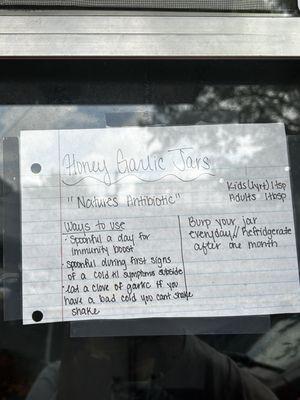 Honey Garlic Jars
"Natures Antibiotic"
Kids (1yr+) 1tsp
Adults 1tbsp
Ways to use
· Spoonful a day for
immunity boost
· spoonful during first signs
of a cold til symptoms subside
· Eat a clove of garlic if you
have a bad cold you cant shake
shake
Burp your jar
everyday // Refridgerate
after one month